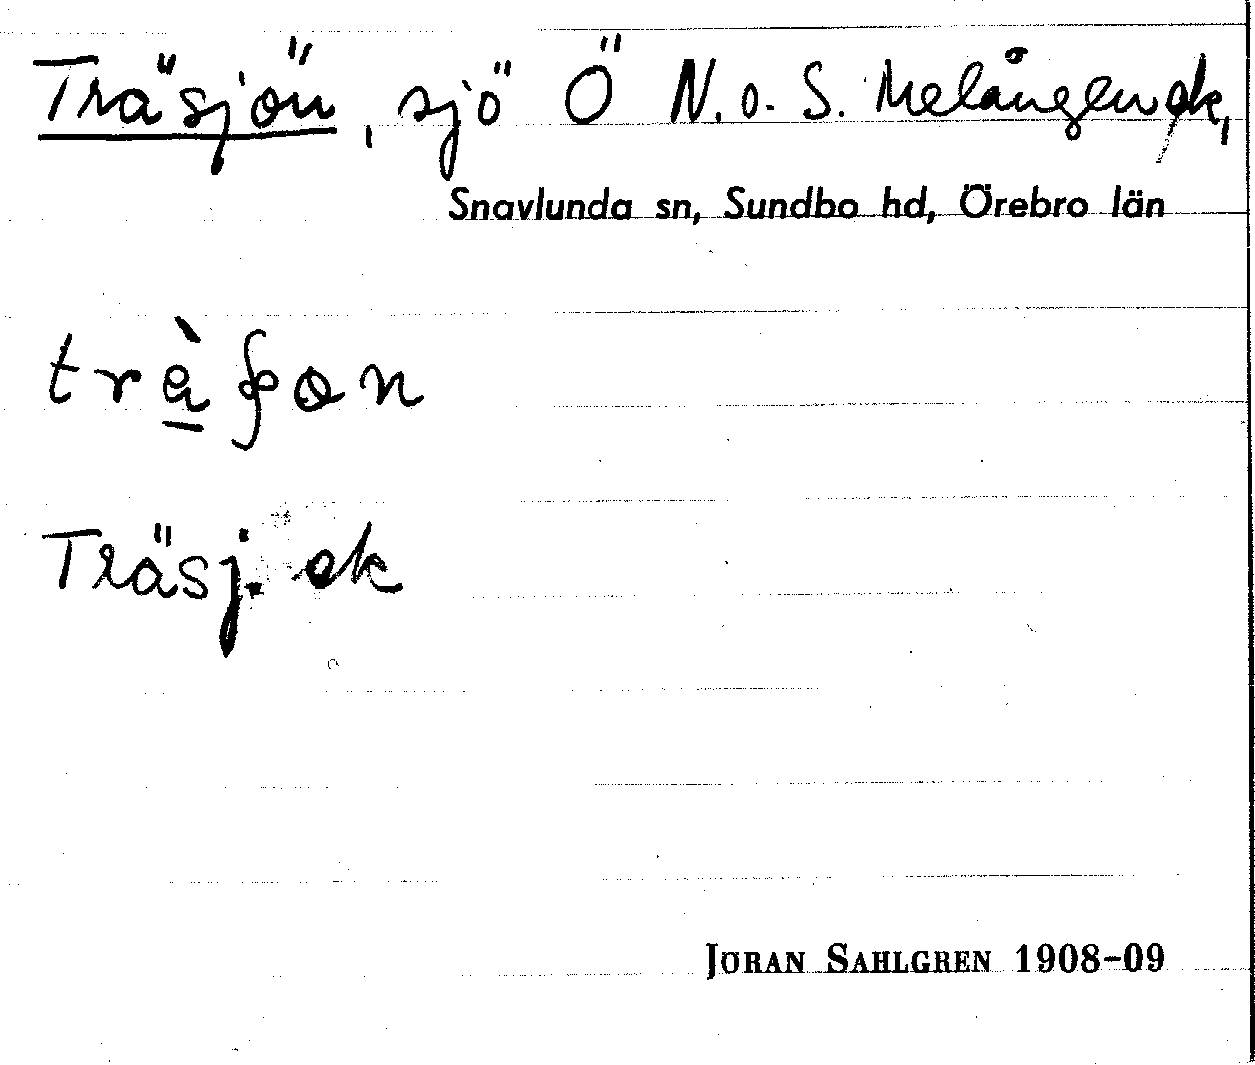 Träsjön, sjö Ö N. o. S. Melången ek,
Snavlunda sn, Sundbo hd, Örebro län
Träsj. ek
JÖRAN SAHLGREN 1908-09